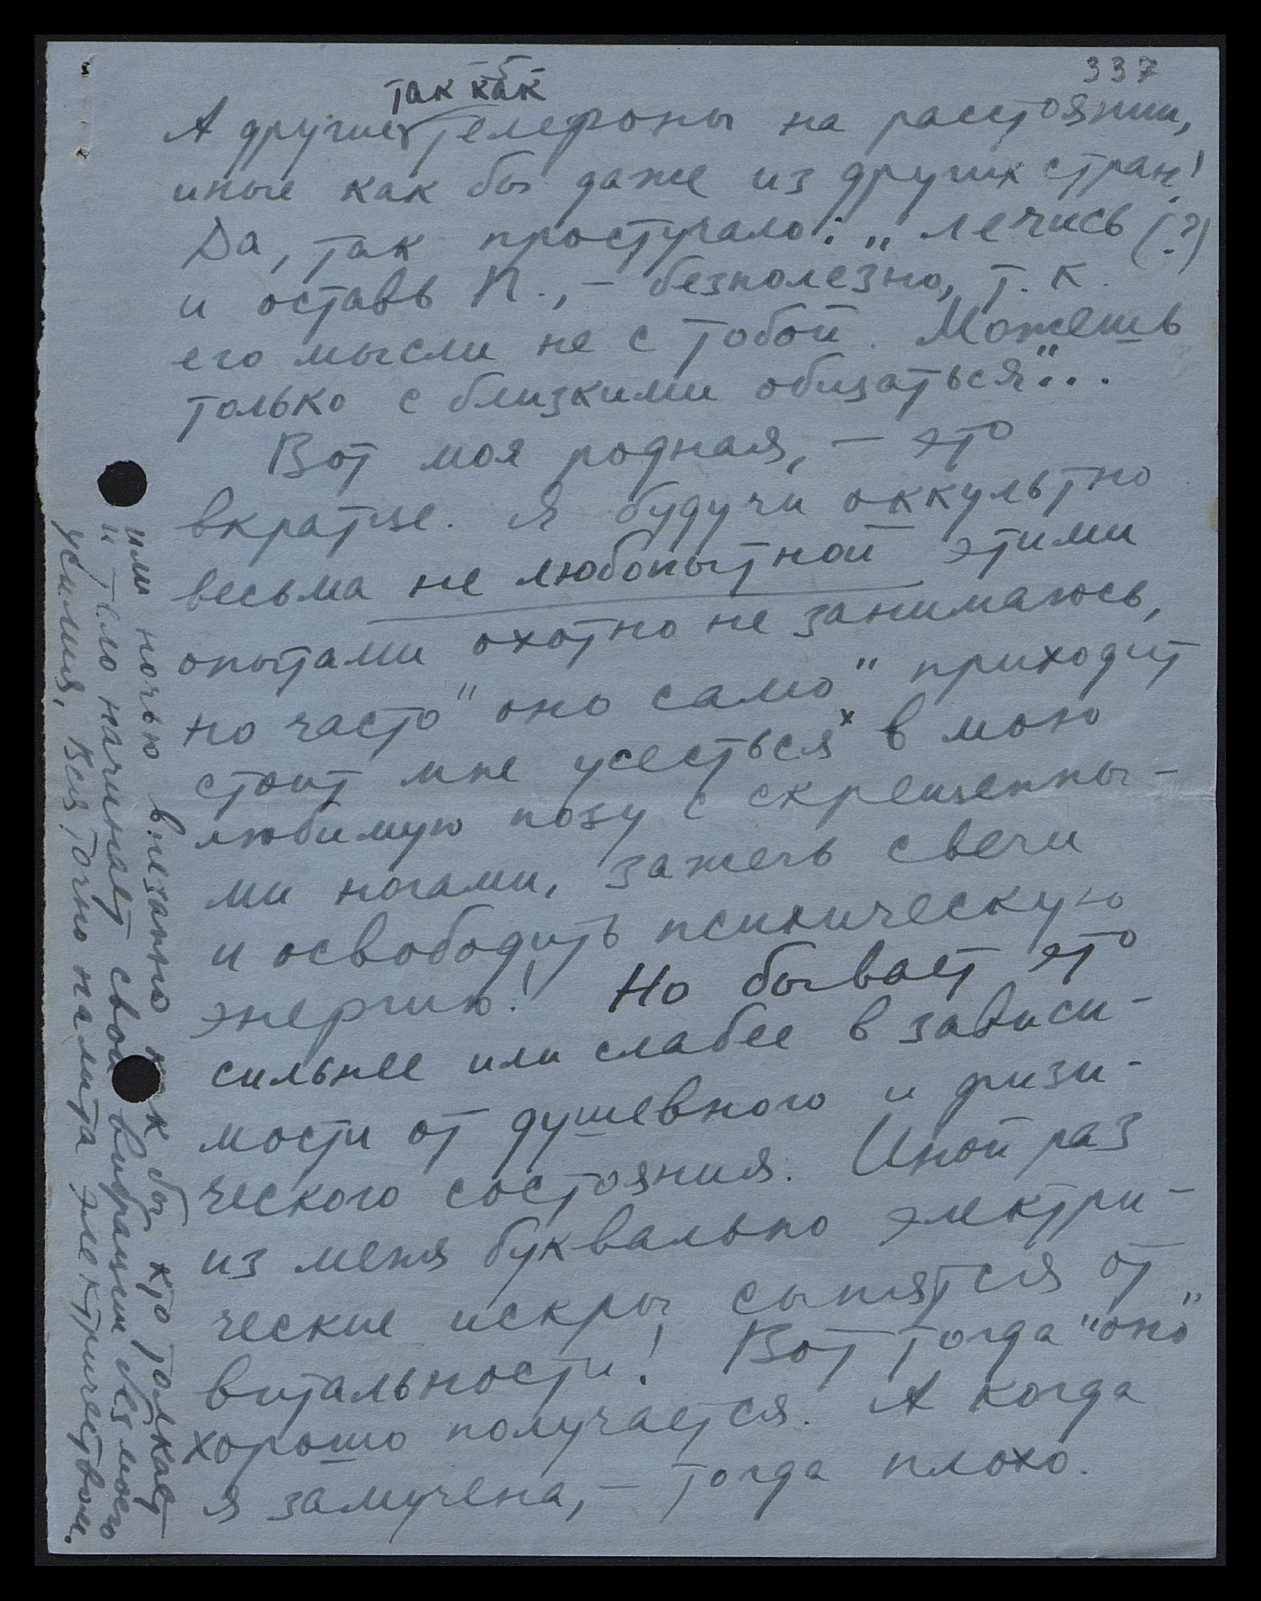 337
так как бы
А другие телефоны на расстоянии,
иные как бы даже из других стран!
Да, так простучало: „лечись (?)
и оставь П., – безполезно, т. к.
его мысли не с тобой. Можешь
только с близкими общаться"...
Вот моя родная, – это
вкратце. Я будучи оккультно
весьма не любопытной этими
опытами охотно не занимаюсь,
но часто "оно само" приходит
стоит мне усесться x в мою
любимую позу с скрещенны-
ми ногами, зажечь свечи
и освободить психическую
энергию! Но бывает это
сильнее или слабее в зависи-
мости от душевного и физи-
ческого состояния. Иной раз
из меня буквально электри-
ческие искры сыпятся от
витальности! Вот тогда "оно"
хорошо получается. А когда
я замучена, – тогда плохо.
или ночью внезапно как бы кто толкает
и тело начинает свои вибрации без моего
усилия, вся точно налита электричеством.